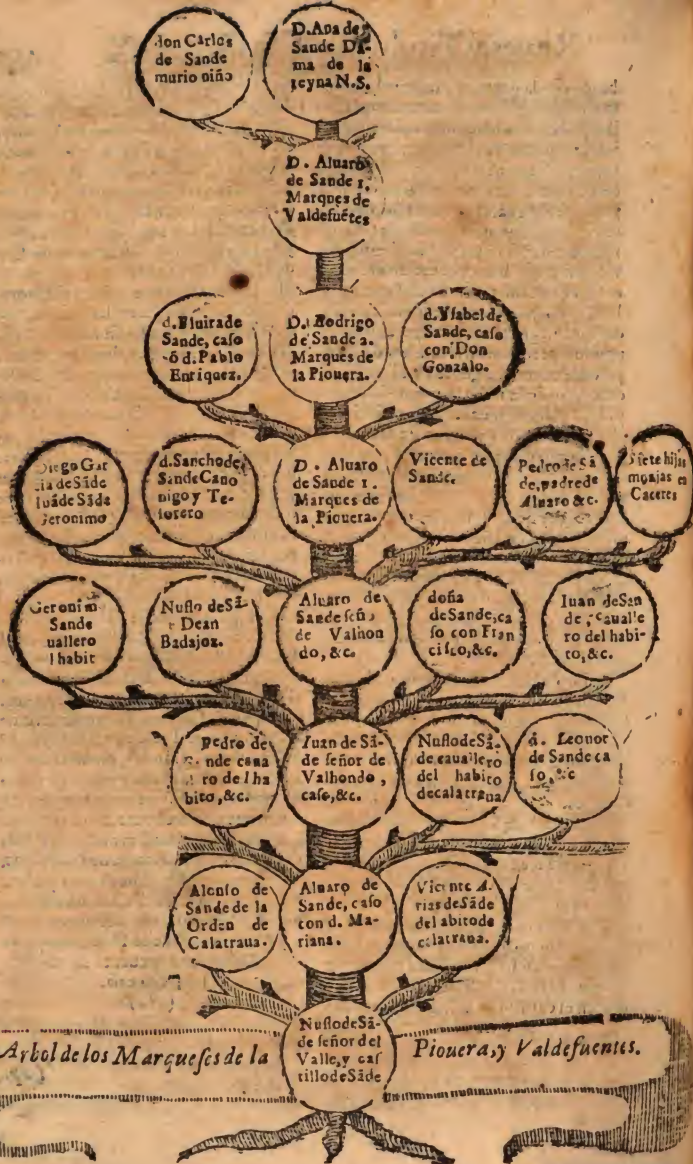 don Carlos
de Sande
murio niño
D. Ana de
Sande Da-
ma de la
reyna N.S.
D. Aluaro
de Sande 1.
Marques de
Valdefuẽtes
d. Eluira de
Sande, caſo
cõ d. Pablo
Enriquez.
D. Rodrigo
de Sande 2.
Marques de
la Piouera.
d. Yſabel de
Sande, caſo
con Don
Gonzalo.
Diego Gar
cia de Sãde
Iuã de Sãde
Geronimo
d. Sancho de
Sande Cano
nigo y Te-
ſorero
D. Aluaro
de Sande 1.
Marques de
la Piouera.
Vicente de
Sande.
Pedro de Sã
de, padre de
Aluaro &c.
Siete hijas
monjas en
Caceres
Geronim
Sande
uallero
l habit
Nuflo de Sã-
Dean
Badajoz.
Aluaro de
Sande ſeño
de Valhon
do, &c.
doña
de Sande, ca
ſo con Fran
ciſco, &c.
Iuan de San
de, Caualle
ro del habi-
to, &c.
Pedro de
Sande caua
ro del ha
bito, &c.
Iuan de Sã-
de ſeñor de
Valhondo,
caſo, &c.
Nuflo de Sã-
de cauallero
del habito
de calatraua
d. Leonor
de Sande ca
ſo, &c
Alonſo de
Sande de la
Orden de
Calatraua.
Aluaro de
Sande, caſo
con d. Ma-
riana.
Vicente A-
rias de Sãde
del abito de
calatraua.
Nuflo de Sã-
de ſeñor del
Valle, y caſ
tillo de Sãde
Arbol de los Marqueſes de la Piouera, y Valdefuentes.